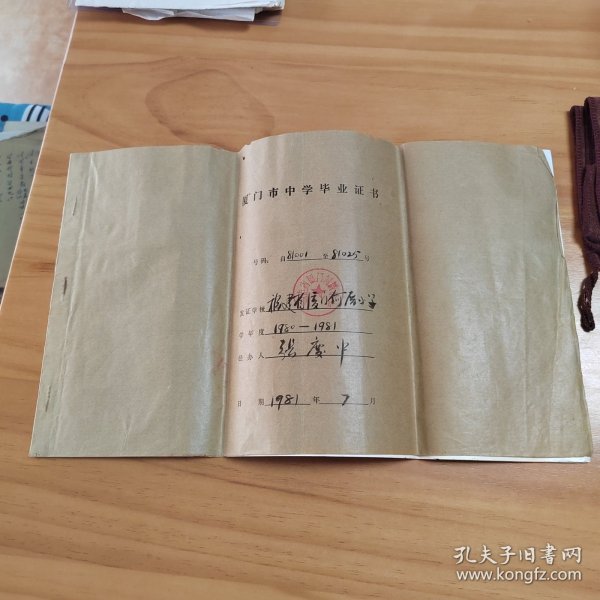 厦门市中学毕业证书
号码：自81001至81025号
发证学校 福建省厦门何厝小学
学年度 1980—1981
经办人 张庆中
日期 1981年7月
孔夫子旧书网
www.kongfz.com